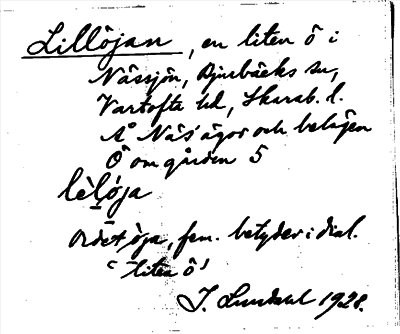 Lillöjan, en liten ö i
Nässjön, Djurbäcks sn,
Vartofta hd, Skarab. l.
Å Näs' ägor och belägen
Ö om gården 5
lèlója
Ordet öja, fem. betyder i dial.
'liten ö'
J. Lundahl 1928.